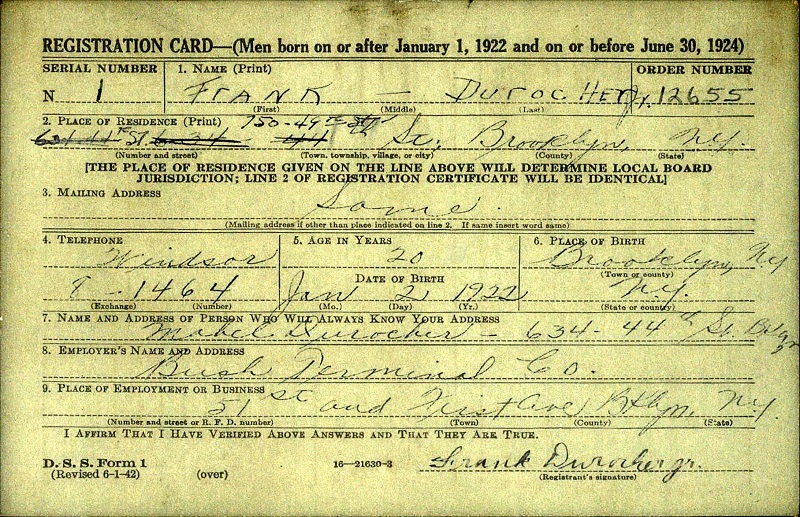 REGISTRATION CARD—(Men born on or after January 1, 1922 and on or before June 30, 1924)
SERIAL NUMBER 1. NAME (Print) ORDER NUMBER
N 1 FRANK - DUROCHER Jr. 12655
(First) (Middle) (Last)
2. PLACE OF RESIDENCE (Print) 750-49th St
634 44th St 634 44 St. Brooklyn, NY.
(Number and street) (Town, township, village, or city) (County) (State)
[THE PLACE OF RESIDENCE GIVEN ON THE LINE ABOVE WILL DETERMINE LOCAL BOARD
JURISDICTION; LINE 2 OF REGISTRATION CERTIFICATE WILL BE IDENTICAL]
3. MAILING ADDRESS
Same.
(Mailing address if other than place indicated on line 2. If same insert word same)
4. TELEPHONE 5. AGE IN YEARS 6. PLACE OF BIRTH
Windsor 20 Brooklyn, NY
(Town or county)
DATE OF BIRTH
8 - 1464 Jan 2 1922 NY.
(Exchange) (Number) (Mo.) (Day) (Yr.) (State or country)
7. NAME AND ADDRESS OF PERSON WHO WILL ALWAYS KNOW YOUR ADDRESS
Mabel Durocher - 634-44th St.
8. EMPLOYER'S NAME AND ADDRESS
Bush Terminal Co.
9. PLACE OF EMPLOYMENT OR BUSINESS
51st and First Ave Bklyn, NY.
(Number and street or R. F. D. number) (Town) (County) (State)
I AFFIRM THAT I HAVE VERIFIED ABOVE ANSWERS AND THAT THEY ARE TRUE.
D. S. S. Form 1
(Revised 6-1-42) (over) 16—21630-3 Frank Durocher jr.
(Registrant's signature)